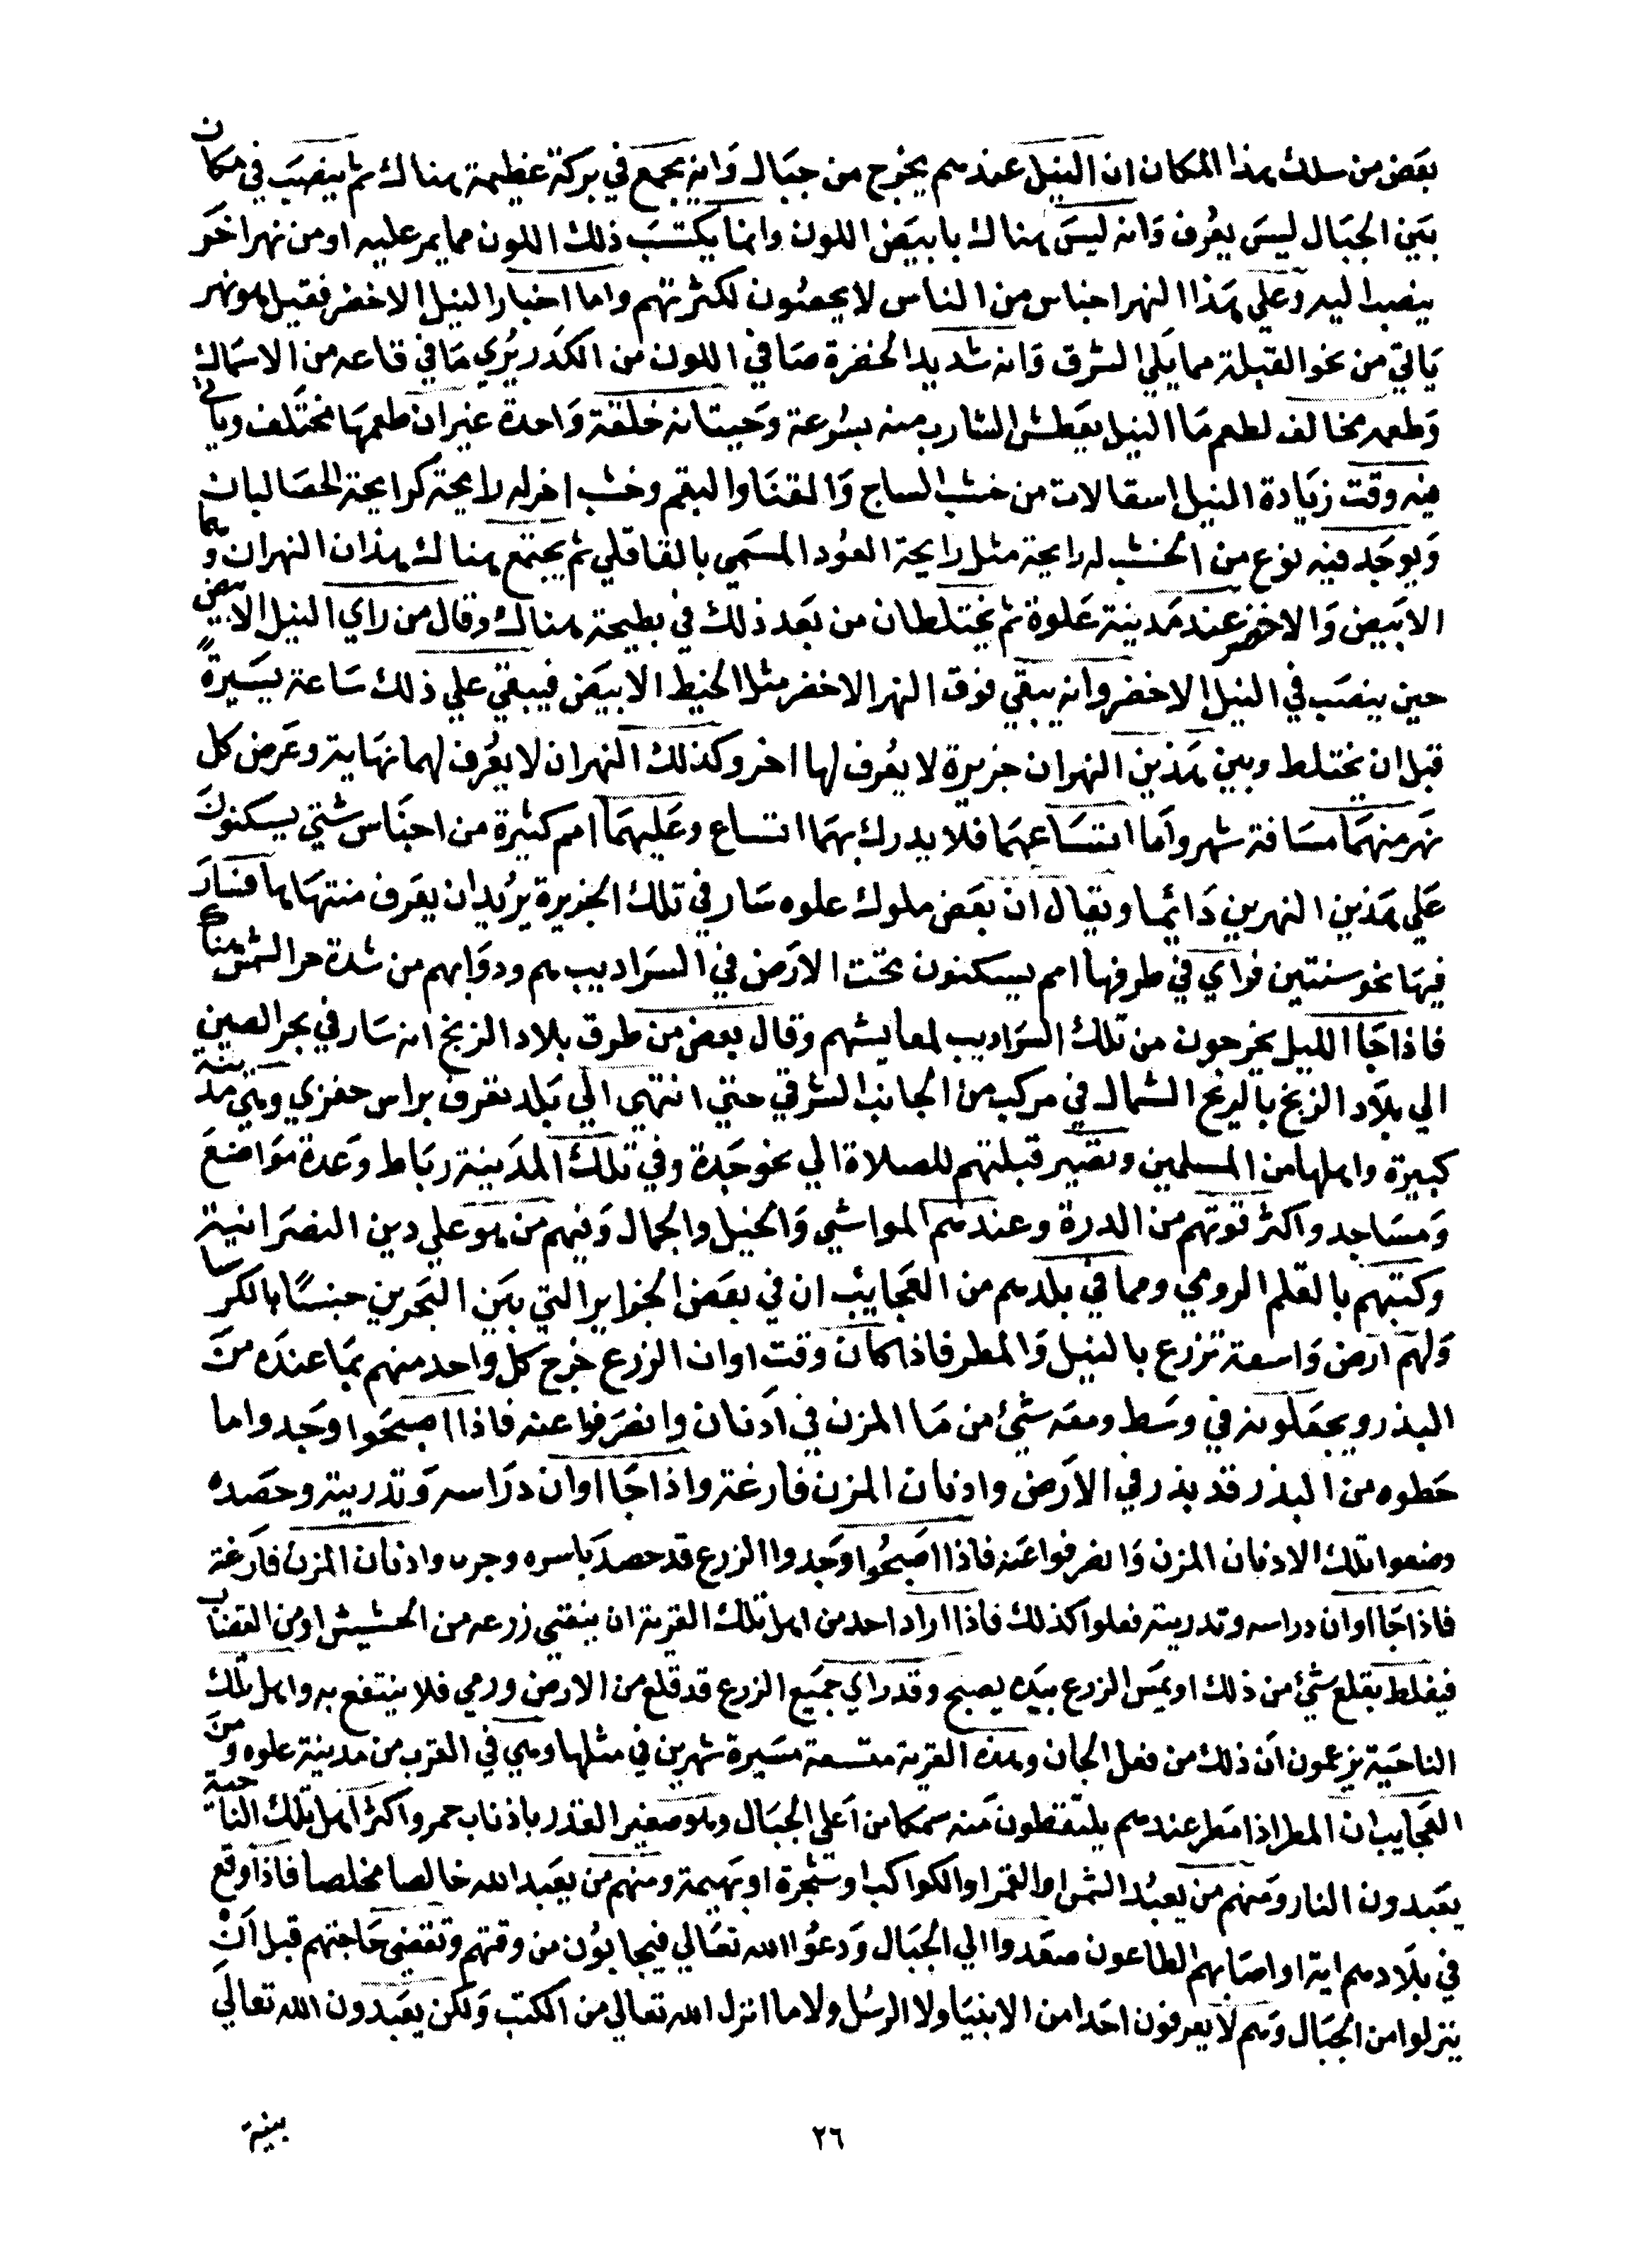 بعض من سلك هذا المكان ان النيل عندهم يخرج من جبال وانه يجمع في بركة عظيمة هناك ثم ينصب في مكان
بين الجبال ليس يعرف وانه ليس هناك بابيض اللون وانما يكتسب ذلك اللون مما يمر عليه او من نهر اخر
ينصب اليه وعلي هذا النهر اجناس من الناس لا يحصون لكثرتهم واما اخبار النيل الاخضر فقيل هو نهر
ياتي من نحو القبلة مما يلي الشرق وانه شديد الخضرة صافي اللون من الكدر يري ما في قاعه من الاسماك
وطعمه مخالف لطعم ما النيل يعطش الشارب منه بسرعة وحيتانه خلقة واحدة غير ان طعمها مختلف وياتي
فيه وقت زيادة النيل اسقالات من خشب الساج والقنا والبقم وخشب اخر له رايحة كرايحة الحصالبان
ويوجد فيه نوع من الخشب له رايحة مثل رايحة العود المسمي بالقاقلي ثم يجتمع هناك هذان النهران وهما
الابيض والاخضر عند مدينة علوة ثم يختلطان من بعد ذلك في بطيحة هناك وقال من راي النيل الابيض
حين ينصب في النيل الاخضر وانه يبقي فوق النهر الاخضر مثل الخيط الابيض فيبقي علي ذلك ساعة يسيرة
قبل ان يختلط وبين هذين النهران جزيرة لا يعرف لها اخر وكذلك النهران لا يعرف لهما نهاية وعرض كل
نهر منهما مسافة شهر واما اتساعهما فلا يدرك بهما اتساع وعليهما امم كثيرة من اجناس شتي يسكنون
علي هذين النهرين دائما ويقال ان بعض ملوك علوه سار في تلك الجزيرة يريد ان يعرف منتهاها فسار
فيها نحو سنتين فراي في طرفها امم يسكنون تحت الارض في السراديب هم ودوابهم من شدة حر الشمس هناك
فاذا جا الليل يخرجون من تلك السراديب لمعايشهم وقال بعض من طرق بلاد الزنج انه سار في بحر الصين
الي بلاد الزنج بالريح الشمال في مركب من الجانب الشرقي حتي انتهي الي بلد تعرف براس حفزي وهي مدينة
كبيرة واهلها من المسلمين وتصير قبلتهم للصلاة الي نحو جدة وفي تلك المدينة رباط وعدة مواضع
ومساجد واكثر قوتهم من الدرة وعندهم المواشي والخيل والجمال وفيهم من هو علي دين النصرانية
وكتبهم بالقلم الرومي ومما في بلدهم من العجايب ان في بعض الجزاير التي بين البحرين جنسًا بالكرسا
ولهم ارض واسعة تزرع بالنيل والمطر فاذا كان وقت اوان الزرع خرج كل واحد منهم بما عنده من
البذر ويجعلونه في وسط ومعه شئ من ما المزن في ادنان وانصرفوا عنه فاذا اصبحوا وجدوا ما
حطوه من البذر قد بذر في الارض وادنان المزن فارغة واذا جا اوان دراسه وتدريته وحصده
وضعوا تلك الادنان المزن وانصرفوا عنه فاذا اصبحوا وجدوا الزرع قد حصد باسره وادنان المزن فارغة
فاذا جا اوان دراسه وتدريته فعلوا كذلك فاذا اراد احد من اهل تلك القرية ان ينقي زرعه من الحشيش او من القضاب
فيغلط بقلع شئ من ذلك او يمس الزرع بيده يصبح وقد راي جميع الزرع قد قلع من الارض ورمي فلا ينتفع به واهل تلك
الناحية يزعمون ان ذلك من فعل الجان وهذه القرية متسعة مسيرة شهرين في مثلها وهي في القرب من مدينة علوه ومن
العجايب ان المطر اذا امطر عندهم يلتقطون منه سمكا من اعلي الجبال وهو صغير القدر باذناب حمر واكثر اهل تلك الناحية
يعبدون النار ومنهم من يعبد الشمس او القمر او الكواكب او شجرة او بهيمة ومنهم من يعبد الله خالصا مخلصا فاذا وقع
في بلادهم اية او اصابهم الطاعون صعدوا الي الجبال ودعوا الله تعالي فيجابون من وقتهم وتقضي حاجتهم قبل ان
ينزلوا من الجبال وهم لا يعرفون احدا من الانبيا ولا الرسل ولا ما انزل الله تعالي من الكتب ولكن يعبدون الله تعالي
بنية
٢٦